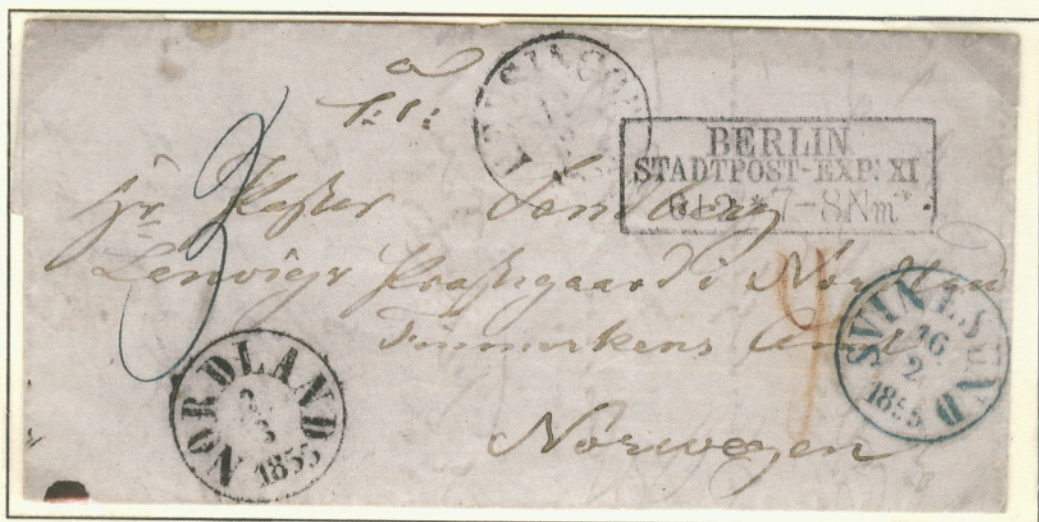 BERLIN
STADTPOST-EXP: XI
6 | 2 * 7-8Nm *
3
Hr Pastor Sandberg
Lenvigs Præstegaard i Nordlan
Finmarkens Amt
Norwegen
SVINESUND
16
2
1855
NORDLAND
3
1855